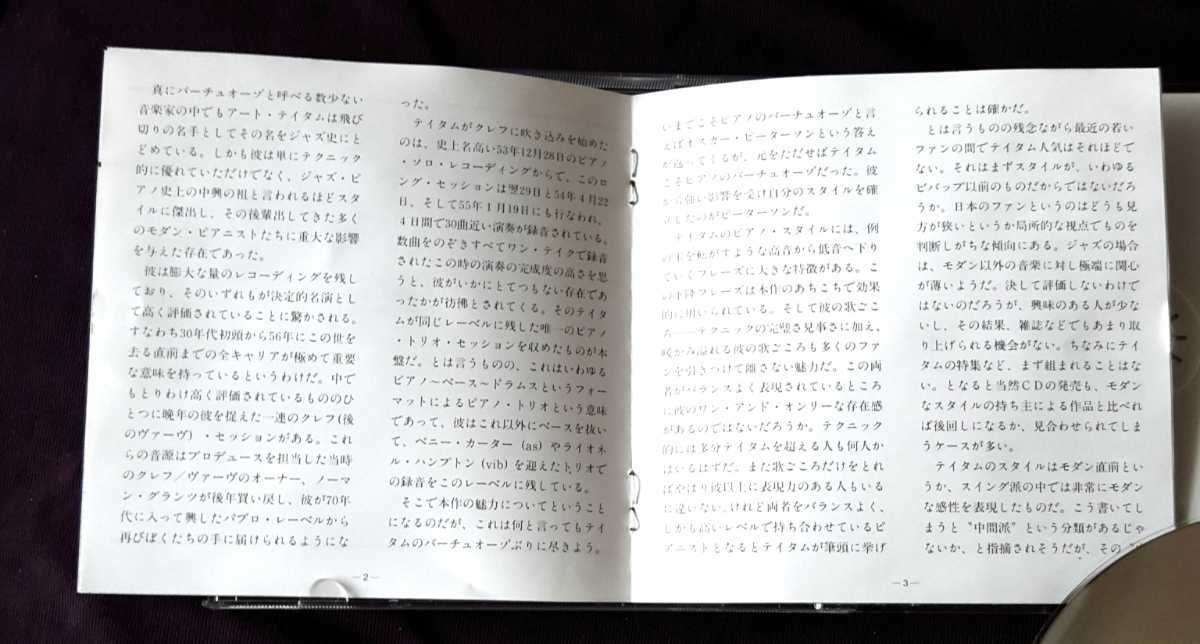 真にバーチュオーゾと呼べる数少ない
音楽家の中でもアート・テイタムは飛び
切りの名手としてその名をジャズ史にと
どめている。しかも彼は単にテクニック
的に優れていただけでなく、ジャズ・ピ
アノ史上の中興の祖と言われるほどスタ
イルに傑出し、その後輩出してきた多く
のモダン・ピアニストたちに重大な影響
を与えた存在であった。
彼は膨大な量のレコーディングを残し
ており、そのいずれもが決定的名演とし
て高く評価されていることに驚かされる。
すなわち30年代初頭から56年にこの世を
去る直前までの全キャリアが極めて重要
な意味を持っているというわけだ。中で
もとりわけ高く評価されているもののひ
とつに晩年の彼を捉えた一連のクレフ(後
のヴァーヴ)・セッションがある。これ
らの音源はプロデュースを担当した当時
のクレフ/ヴァーヴのオーナー、ノーマ
ン・グランツが後年買い戻し、彼が70年
代に入って興したパブロ・レーベルから
再びぼくたちの手に届けられるようにな
った。
テイタムがクレフに吹き込みを始めた
のは、史上名高い53年12月28日のピアノ
・ソロ・レコーディングからで、このロ
ング・セッションは翌29日と54年4月22
日、そして55年1月19日にも行なわれ、
4日間で30曲近い演奏が録音されている。
数曲をのぞきすべてワン・テイクで録音
されたこの時の演奏の完成度の高さを思
うと、彼がいかにとてつもない存在であ
ったかが彷彿とされてくる。そのテイタ
ムが同じレーベルに残した唯一のピアノ
・トリオ・セッションを収めたものが本
盤だ。とは言うものの、これはいわゆる
ピアノ〜ベース〜ドラムスというフォー
マットによるピアノ・トリオという意味
であって、彼はこれ以外にベースを抜い
て、ベニー・カーター(as)やライオネ
ル・ハンプトン(vib)を迎えたトリオで
の録音をこのレーベルに残している。
そこで本作の魅力についてということ
になるのだが、これは何と言ってもテイ
タムのバーチュオーゾぶりに尽きよう。
—2—
いまでこそピアノのバーチュオーゾと言
えばオスカー・ピーターソンという答え
が返ってくるが、元をただせばテイタム
こそピアノのバーチュオーゾだった。彼
から強い影響を受け自分のスタイルを確
立したのがピーターソンだ。
テイタムのピアノ・スタイルには、例
の玉を転がすような高音から低音へ下り
ていくフレーズに大きな特徴がある。こ
の下降フレーズは本作のあちこちで効果
的に用いられている。そして彼の歌ごこ
ろ——テクニックの完璧さ見事さに加え、
暖かみ溢れる彼の歌ごころも多くのファ
ンを引きつけて離さない魅力だ。この両
者がバランスよく表現されているところ
に彼のワン・アンド・オンリーな存在感
があるのではないだろうか。テクニック
的には多分テイタムを超える人も何人か
はいるはずだ。また歌ごころだけをとれ
ばやはり彼以上に表現力のある人もいる
に違いない。けれど両者をバランスよく、
しかも高いレベルで持ち合わせているピ
アニストとなるとテイタムが筆頭に挙げ
られることは確かだ。
とは言うものの残念ながら最近の若い
ファンの間でテイタム人気はそれほどで
ない。それはまずスタイルが、いわゆる
ビバップ以前のものだからではないだろ
うか。日本のファンというのはどうも見
方が狭いというか局所的な視点でものを
判断しがちな傾向にある。ジャズの場合
は、モダン以外の音楽に対し極端に関心
が薄いようだ。決して評価しないわけで
はないのだろうが、興味のある人が少な
いし、その結果、雑誌などでもあまり取
り上げられる機会がない。ちなみにテイ
タムの特集など、まず組まれることはな
い。となると当然CDの発売も、モダン
なスタイルの持ち主による作品と比べれ
ば後回しになるか、見合わせられてしま
うケースが多い。
テイタムのスタイルはモダン直前とい
うか、スイング派の中では非常にモダン
な感性を表現したものだ。こう書いてし
まうと"中間派"という分類があるじゃ
ないか、と指摘されそうだが、その
—3—